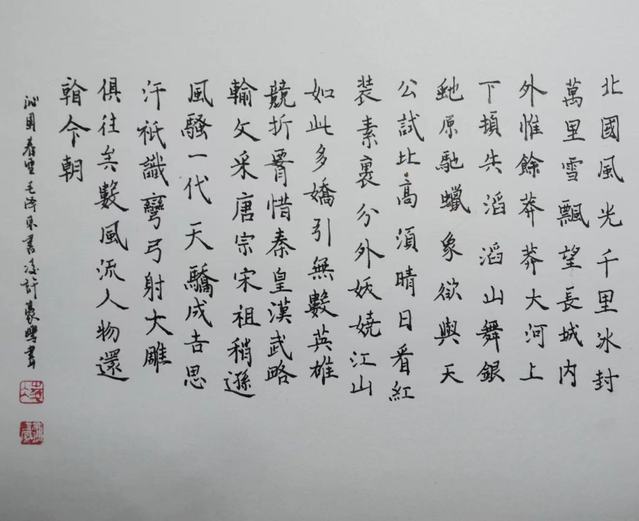 北國風光千里冰封
萬里雪飄望長城內
外惟餘莽莽大河上
下頓失滔滔山舞銀
虵原馳蠟象欲與天
公試比高須晴日看紅
装素裹分外妖嬈江山
如此多嬌引無數英雄
競折惜秦皇漢武略
輸文采唐宗宋祖稍遜
風騷一代天驕成吉思
汗祇識彎弓射大雕
俱往矣數風流人物還
今朝
沁園春雪毛澤東書許書